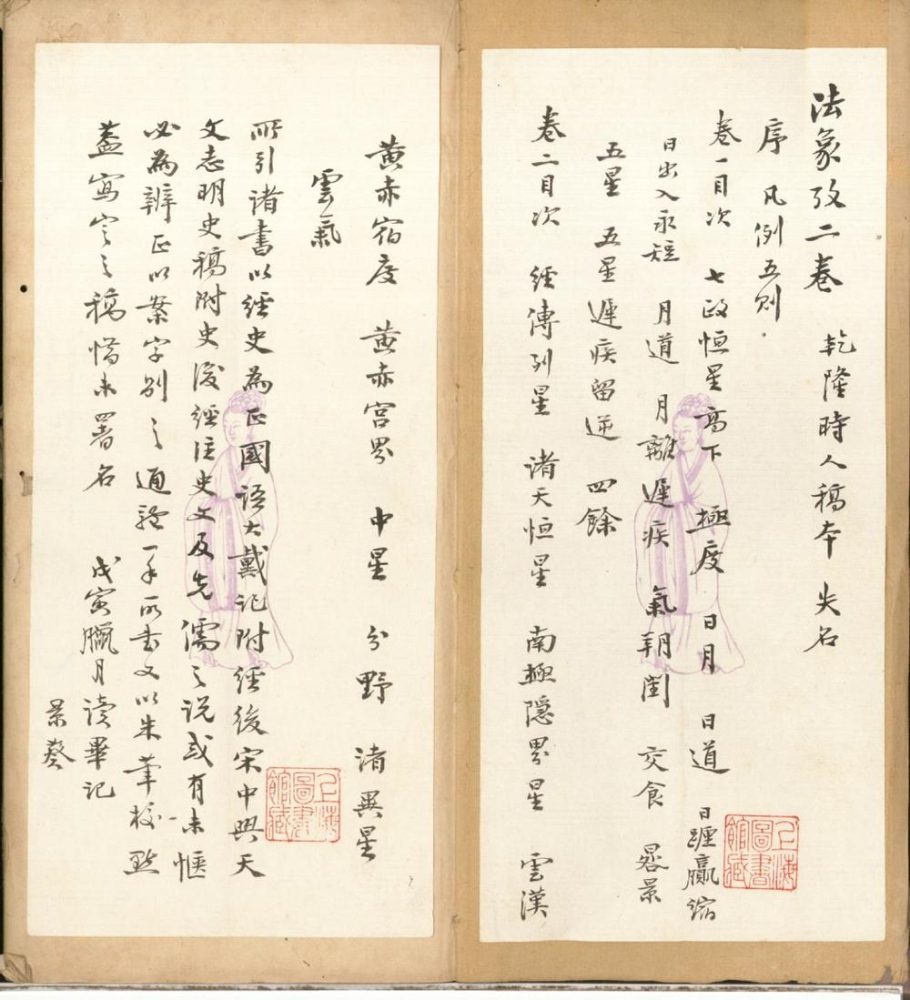 法象攷二卷　乾隆時人稿本　失名
序　凡例五則
卷一目次　七政恒星高下　極度　日月　日道　日躔贏縮
日出入永短　月道　月離遲疾　氣朔閏　交食　晷景
五星　五星遲疾留逆　四餘
卷二目次　經傳列星　诸天恒星　南極隱界星　雲漢
上海圖書館藏
黄赤宿度　黄赤宫界　中星　分野　渚異星
雲氣
所引诸書以經史為正國语大戴记附經後宋中興天
文志明史稿附史後經注史文及先儒之说或有未愜
必為辨正以案字别之通體一手所書又以朱筆校點
盖寫定之稿惜未署名　戊寅臘月读畢记
景葵
上海圖書館藏